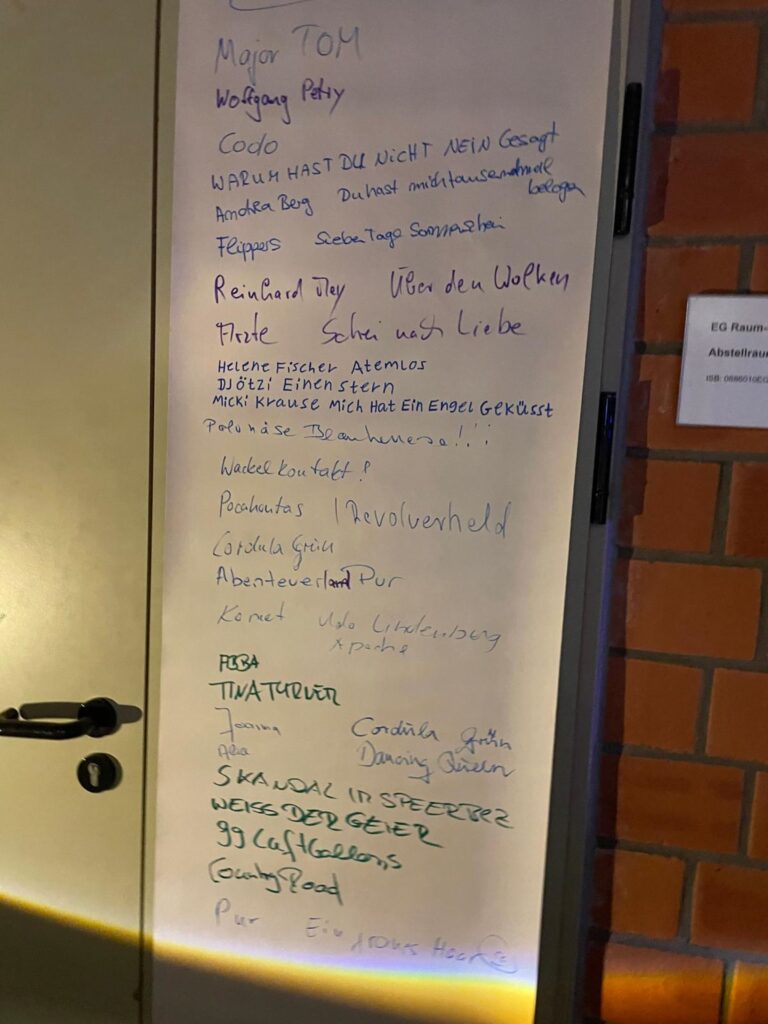 Major TOM
Wolfgang Petry
Codo
WARUM HAST DU NICHT NEIN Gesagt
Andrea Berg Du hast mich tausendmal
belogen
Flippers Sieben Tage Sonnenschein
Reinhard Mey Über den Wolken
Ärzte Schrei nach Liebe
Helene Fischer Atemlos
DJ Ötzi Einen Stern
Micki Krause Mich Hat Ein Engel Geküsst
Polonäse Blankenese!!!
Wackelkontakt!
Pocahontas / Revolverheld
Cordula Grün
Abenteuerland Pur
Komet Udo Lindenberg
Apache
ABBA
TINA TURNER
Cordula Grün
Dancing Queen
SKANDAL IM SPEERBEZ
WEISS DER GEIER
99 Luftballons
Country Road
Pur Ein
EG Raum-
Abstellrau
ISB: 0886010EG